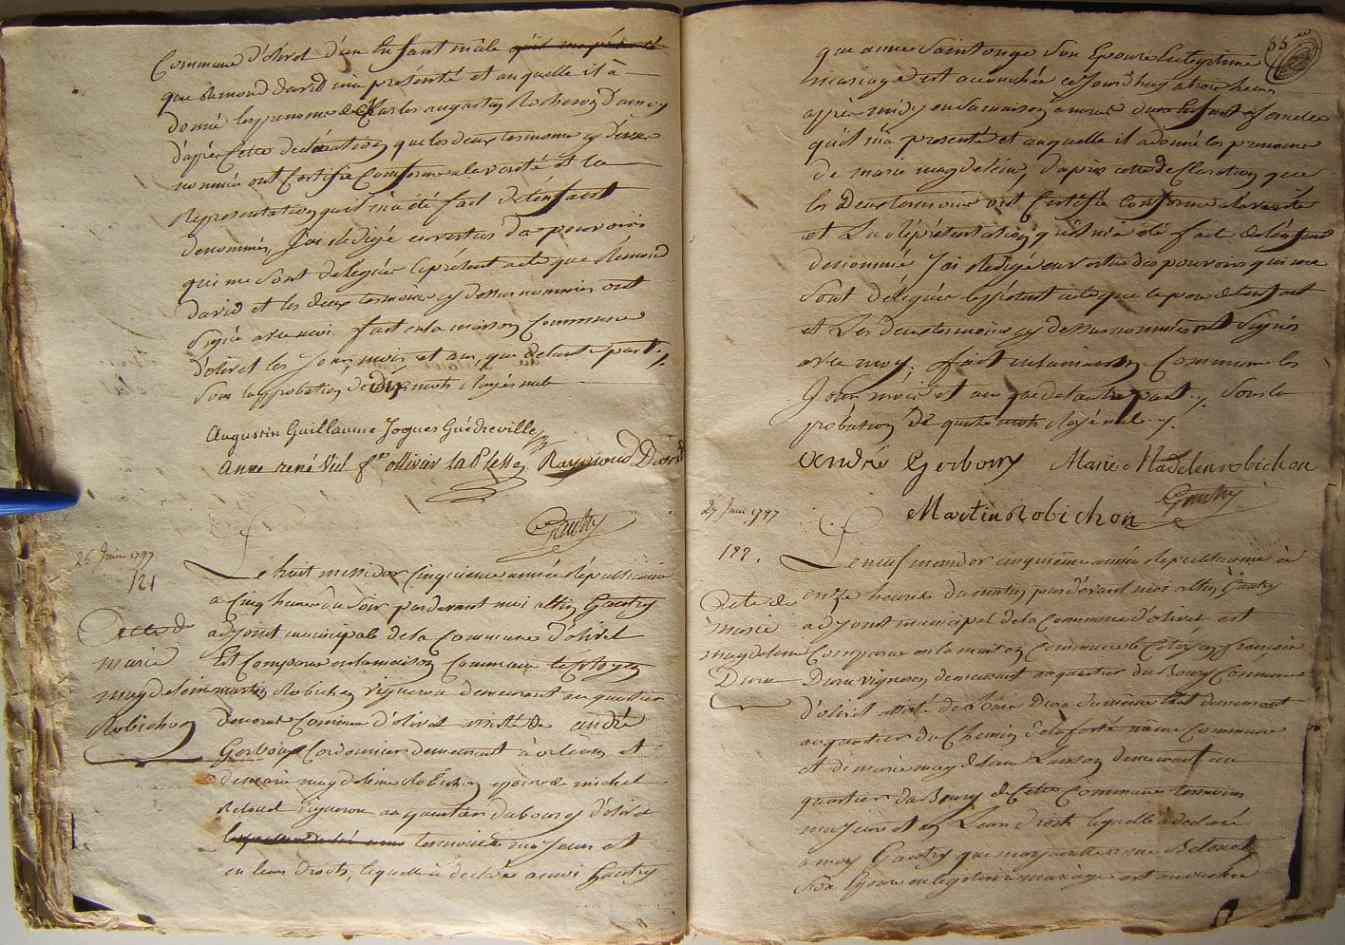 Commune d'olivet d'un Enfant mâle
que Remond david m'a présenté et auquelle il à
donné les prenoms de Charles augustin
d'après Cette declaration que les deux temoins cy dessus
nommés ont Certifié Conforme a la verité et la
Representation qu'il m'a été fait de l'enfant
denommé, J'ai Redigé en vertus des pouvoirs
qui me sont delegués le présent acte que Remond
david et les deux temoins cy dessus nommés ont
signé avec moi fait en la maison Commune
d'olivet les jour, mois et an, que detautre part
Sous lapprobation de dix mots rayés nuls
Augustin Guillaume Jogues Guédreville
Anne rené Viel ollivier la Plesse Raymond David
Gautry
26 Juin 1797
121
Acte de
marie
magdeleine
Robichon
Le huit messidor Cinquieme année Républicaine
a Cinq heures du soir pardevant moi altin Gautry
adjoint municipale de la Commune d'olivet
Est Comparu en la maison Commune le Citoyen
martin Robichon vigneron demeurant au quartier
Commune d'olivet assisté de andré
Gerboux Cordonnier demeurant à orleans et
de marie magdeleine Robichon epouse de michel
vigneron au quartier du bourg d'olivet
temoins majeurs et
en leurs droits, lequelle à déclaré a moi Gautry
que anne Saintonge Son Epouse En legitime
mariage est accouchée ce Jourd'huy a trois heures
après midy en sa maison a morat d'un Enfant femelle
quil m'a presenté et auquelle il a donné les prenoms
de marie magdeleine, d'après cette declaration que
les Deux temoins ont Certifié Conforme a la verité
et La Réprésentation qu'il m'a été fait de lenfant
denommé J'ai Redigé en vertu des pouvoirs qui me
Sont delegués le présent acte que le pere de lenfant
et Les deux temoins cy dessus nommés ont Signés
avec moy, fait en la maison Commune les
Jour mois et an que detautre part, Sous la
probation de quatre mots rayé nul
André Gerboux Marie Madelene robichon
Martin Robichon Gautry
27 Juin 1797
122.
Acte de
marie
magdeleine
Diou
Le neuf messidor cinquieme année Républicaine à
onze heures du matin pardevant moi altin Gautry
adjoint municipal de la Commune d'olivet est
Comparu en la maison Commune le Citoyen françois
Diou vigneron demeurant au quartier du Bourg Commune
d'olivet assisté de Diou demeurant
au quartier du Chemin de la ferté même Commune
et de marie magdeleine demeurant au
quartier du Bourg de Cette Commune temoins
majeurs et en Leurs droits lequelle a declaré
a moy Gautry que
Son Epouse en legitime mariage est accouchée